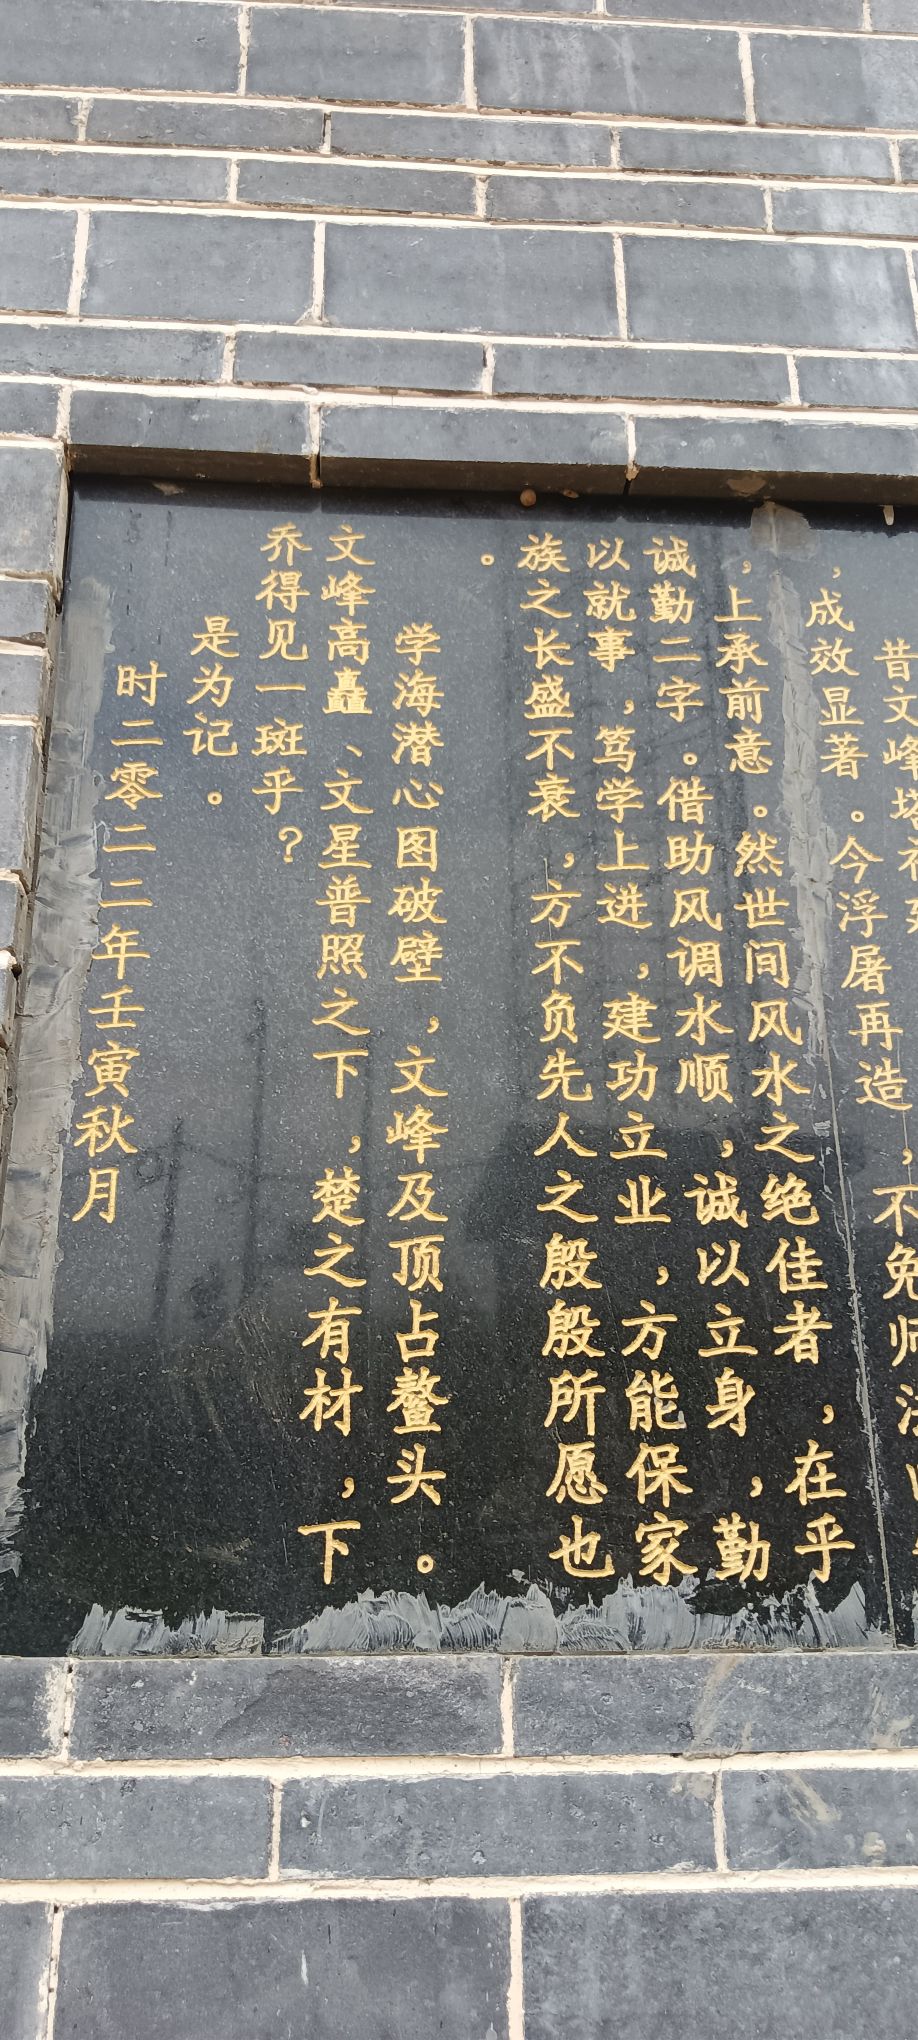 昔文峰塔初建，不免师法
，成效显著。今浮屠再造
，上承前意。然世间风水之绝佳者，在乎
诚勤二字。借助风调水顺，诚以立身，勤
以就事，笃学上进，建功立业，方能保家
族之长盛不衰，方不负先人之殷殷所愿也
。
学海潜心图破壁，文峰及顶占鳌头。
文峰高矗、文星普照之下，楚之有材，下
乔得见一斑乎？
是为记。
时二零二二年壬寅秋月